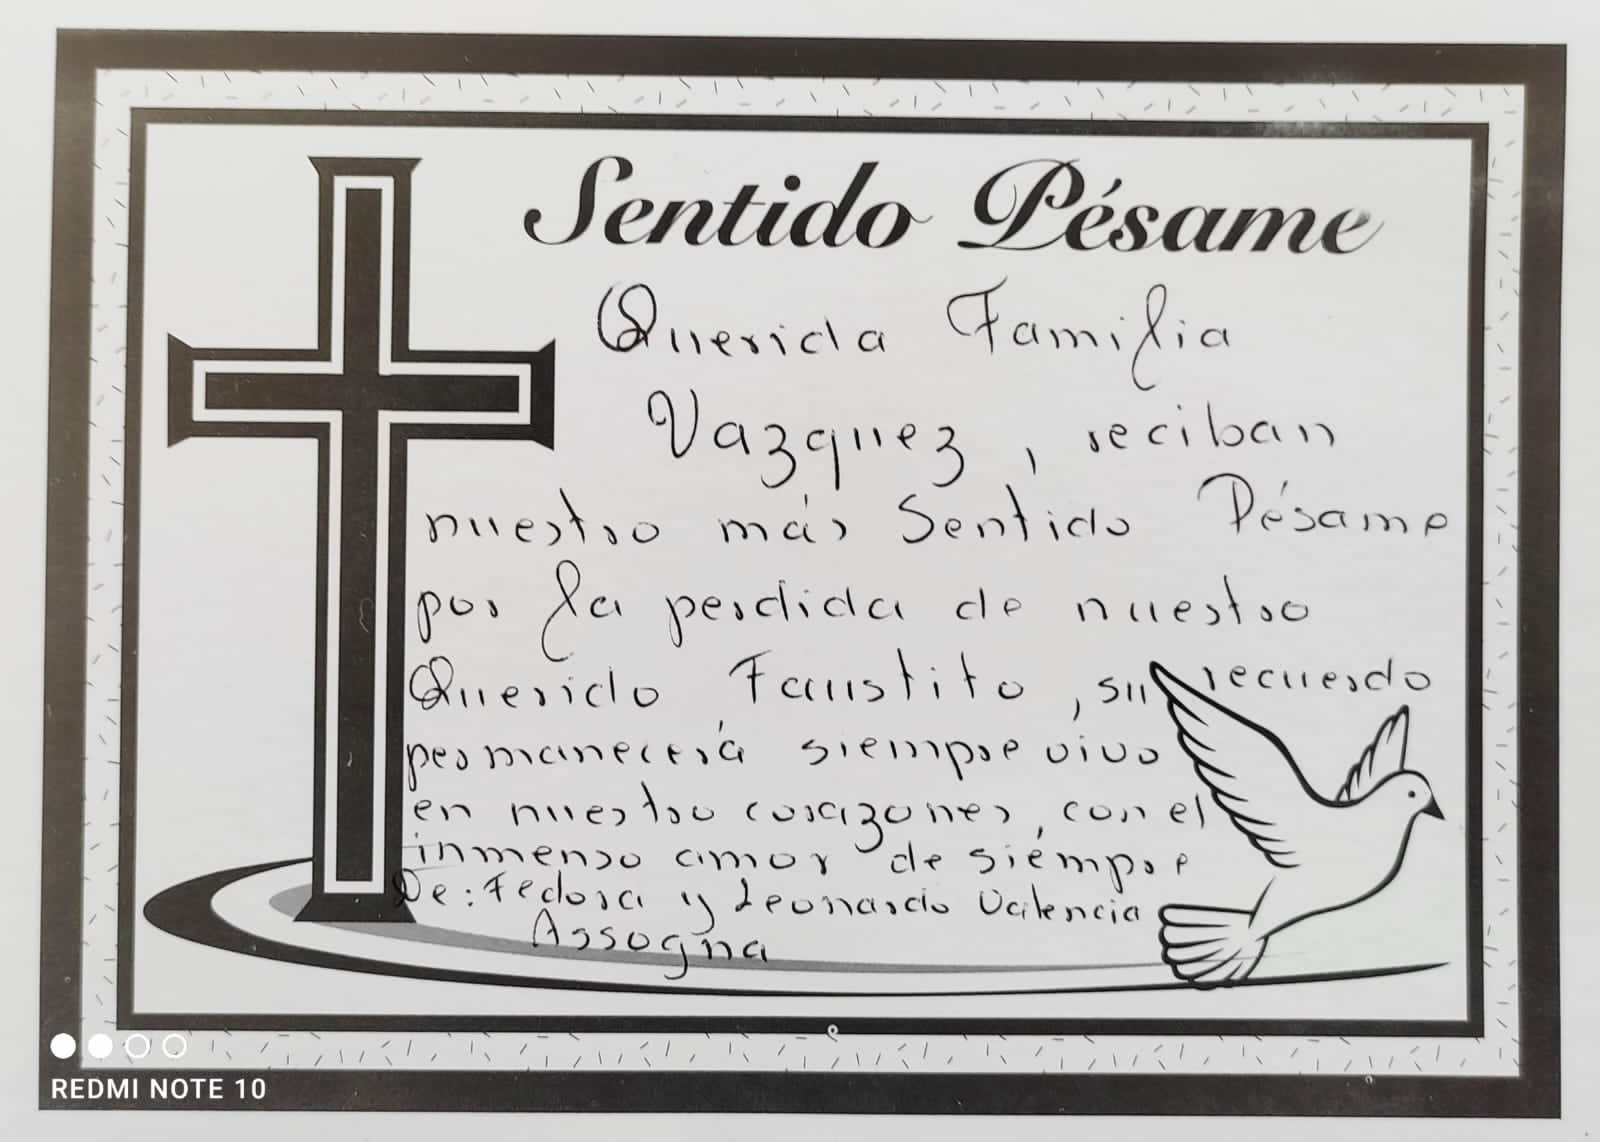 Sentido Pésame
Querida Familia
Vazquez, reciban
nuestro más Sentido Pésame
por la perdida de nuestro
Querido Faustito, su recuerdo
permanecerá siempre vivo
en nuestro corazones, con el
inmenso amor de siempre
De: Fedora y Leonardo Valencia
Assogna
REDMI NOTE 10